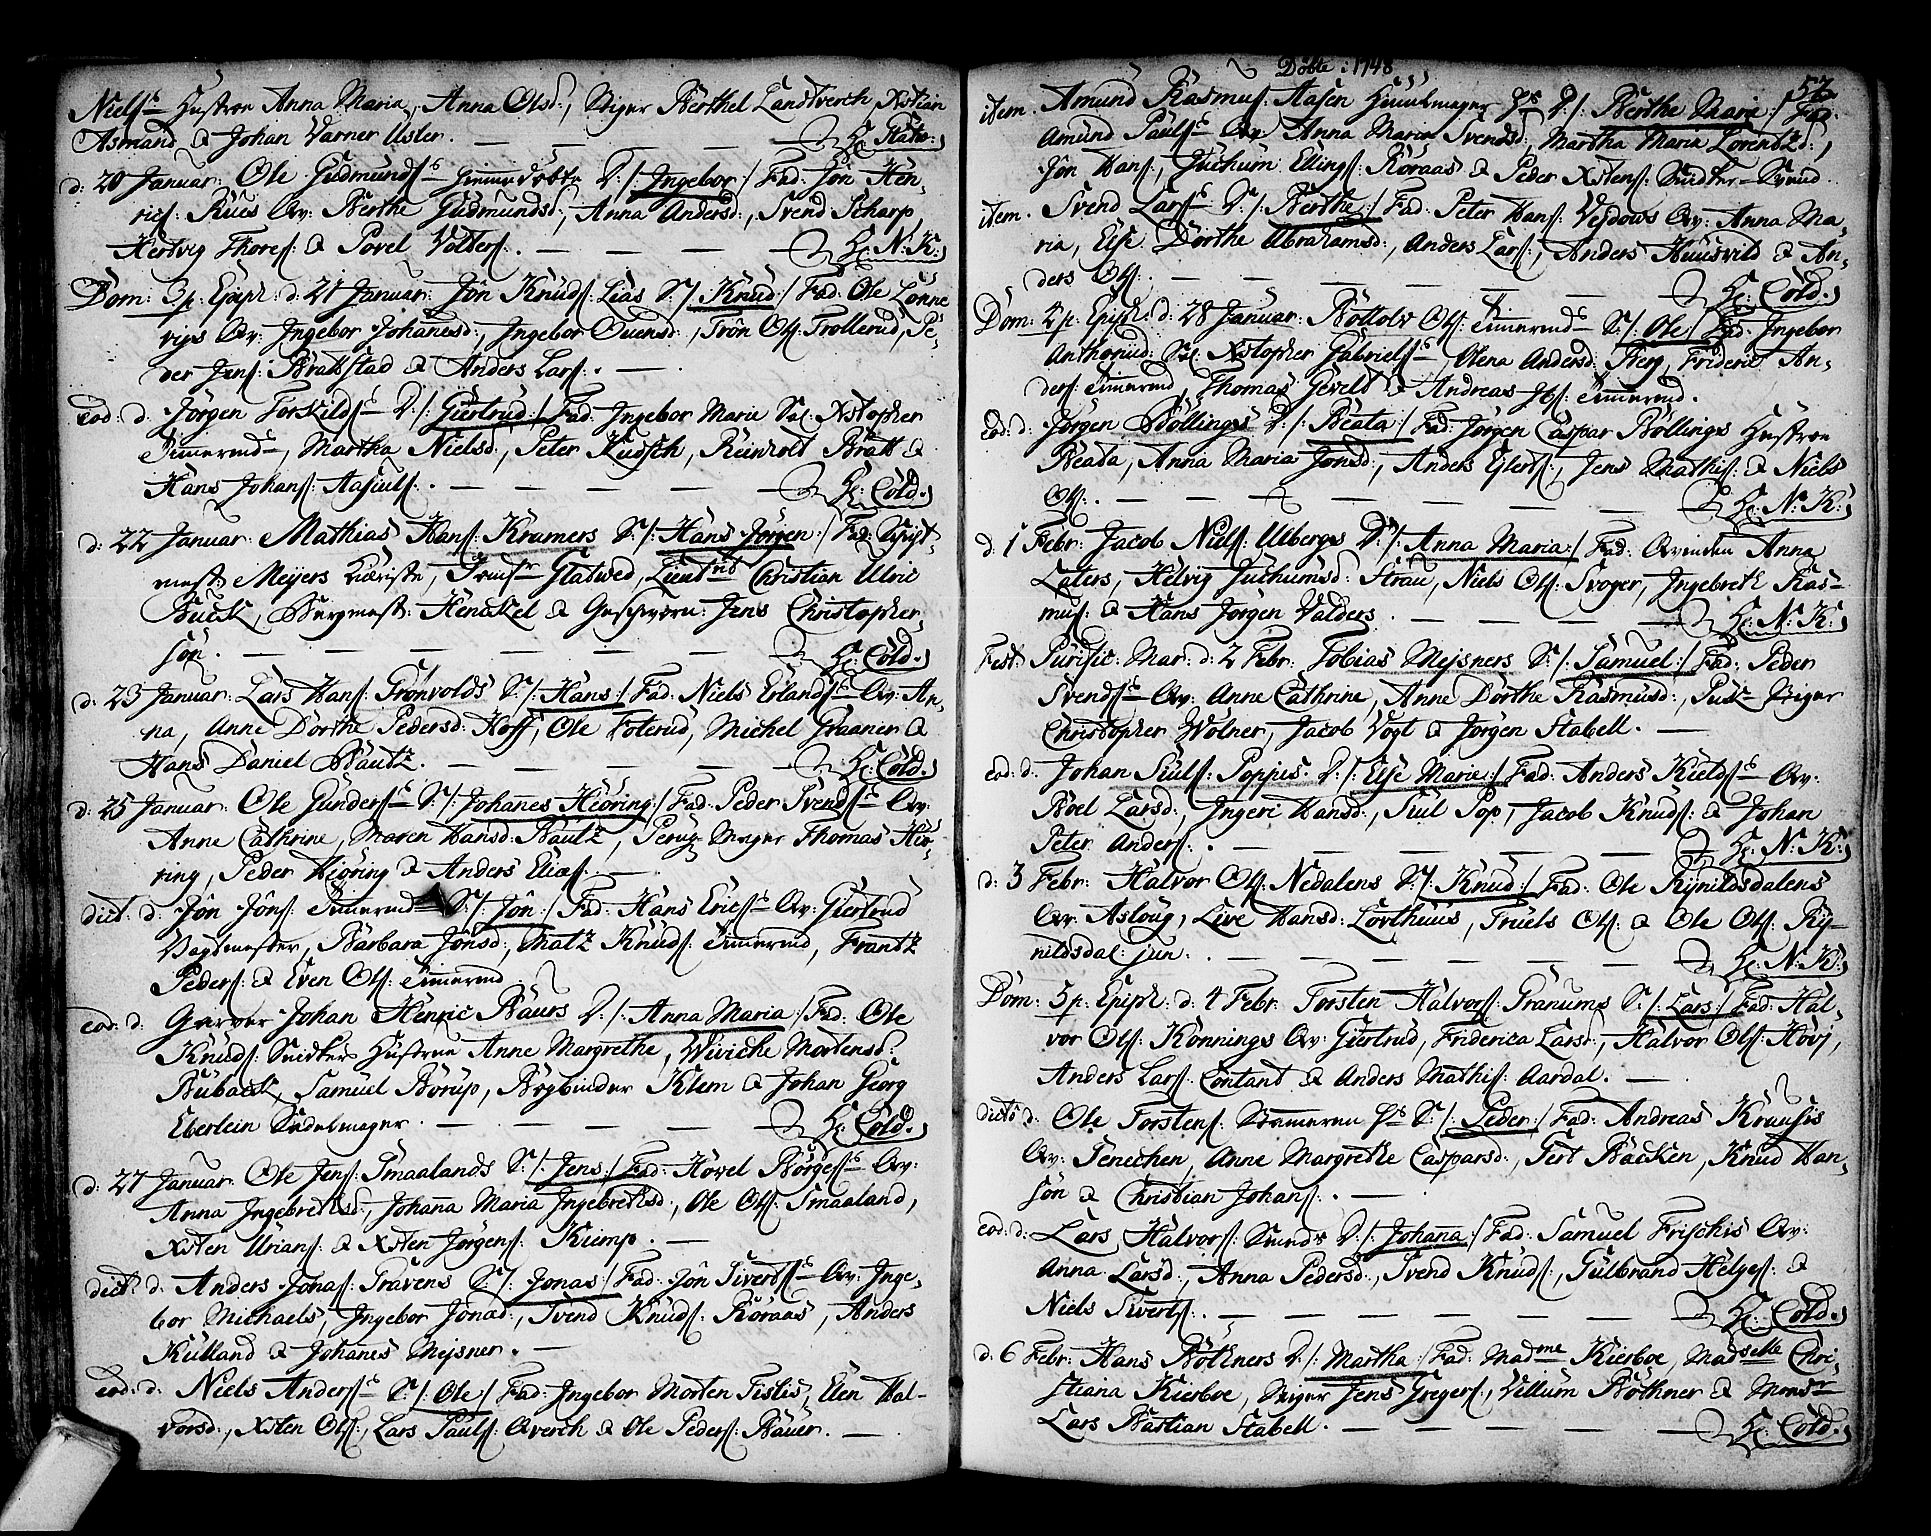 Niels͡s Hustroe Anna Maria, Anna Olsd:, Berthel Lanstverch, Xstian
Asmand & Johan Varner Usler. — — — — Hr:
d: 20 Januar: Ole Gudmunds: D:/: Ingebor :/ Fad: Jôn Hen,
rics: Rues Qv: Berthe Gudmundsd:, Anna Andersd:, Svend Scharp,
Hertvig Thores: & Povel Volters: — — — Hr: N: K:
Dom: 3 p: Epiph: d: 21 Januar: Jôn Knuds: Lias S:/: Knud :/ Fad: Ole Lônne
vigs Qv: Ingebor Johanesd:, Ingebor Ouensd:, Trôn Ols: Trollerud, Pe,
der Jens: Brattstad & Anders Lars: . —
eod: d: Jôrgen Torskilds: D:/: Giertrud :/ Fad: Ingebor Marie Sal: Xstopher
Timermds, Martha Nielsd:, Peter Kudsch, Reinholt Bratt &
Hans Johans: Aasiuls: . — — — — — Hr: Cold.
d: 22 Januar: Mathias Hans: Kramers S:/: Hans Jôrgen :/ Fad:
mest: Meyers Kiæriste, Glatved, Lieutnd Christian Ulric
Buck, Bergmest: Henckel & Geschworn: Jens Christopher,
sôn. — — — — — — — Hr: Cold.
d: 23 Januar: Lars Hans: Grônvolds S:/: Hans :/ Fad: Niels Erlands: Qv: An,
na, Anne Dorthe Pedersd: Hoff, Ole Foterud, Michel Graaner &
Hans Daniel Bautz. — — — — — Hr: Cold.
d: 25 Januar: Ole Gunders: S:/: Johannes Hiôring :/ Fad: Peder Svends: Qv:
Anne Cathrine, Maren Hansd: Bautz, Perug-Mager Thomas Hiô,
ring, Peder Hiôring & Anders Elias: . —
dict: d: Jôn Jôns: Timermds S:/: Jôn :/ Fad: Hans Erics: Qv: Giertrud
Vagtmester, Barbara Jônsd:, Matz Knuds: Timermd, Frantz
Peders: & Even Ols: Timermd.
eod: d: Garver Johan Henric Baurs D:/: Anna Maria :/ Fad: Ole
Knuds: Snidkers Hustroe Anne Margrethe, Wiviche Mortensd:
Rubach, Samuel Borup, Bogbinder Klem & Johan Georg
Eberlein Sadelmager. — — — — — Hr: Cold.
d: 27 Januar: Ole Jens: Smaalands S:/: Jens :/ Fad: Hôvel Bôrges: Qv:
Anna Ingebrethsd:, Johanna Maria Ingebrethsd:, Ole Ols: Smaaland,
Xsten Urians: & Xsten Jôrgens: Kiemp. —
dict: d: Anders Jonas: Travens S:/: Jonas :/ Fad: Jôn Siverts: Qv: Inge,
bor Michaels, Ingebor Jonæd:, Svend Knuds: Rôraas, Anders
Kulland & Johanes Mejsner. —
eod: d: Niels Anders: S:/: Ole :/ Fad: Ingebor Morten Fistis, Elen Hal-
vorsd:, Xsten Ols:, Lars Pauls: Qverch & Ole Peders: Bauer. —
Dôbte: 1748
item. Amund Rasmus: Aasen D:/: Berthe Marie :/ Fad:
Amund Pauls: Qv: Anna Maria Svendsd:, Martha Maria Lorentzd:,
Jôn Hans:, Juchum Ellings: Rôraas & Peder Xstens: Snidker-Svend.
item. Svend Lars: D:/: Berthe :/ Fad: Peter Hans: Vejdous Qv: Anna Ma,
ria, Else Dorthe Abrahamsd:, Anders Lars:, Anders Huusvild & An,
ders Ols: . — — — — — — Hr: Cold.
Dom: 4 p: Epiph: d: 28 Januar: Bôttolv Ols: Timermds S:/: Ole :/ Fad: Ingebor
Anthoniid: Sal: Xstopher Gabriels:, Olena Andersd: Berg, Frideric An,
ders: Timermd, Thomas Gevelt & Andreas Jbs: Timermd.
eod: d: Jôrgen Bôllings D:/: Beata :/ Fad: Jôrgen Caspar Bôllings Hustroe
Beata, Anna Maria Jonsd:, Anders Eylerts:, Jens Mathis: & Niels
Ols: . — — — — — — Hr: N: K:
d: 1 Febr: Jacob Niels: Ulbergs D:/: Anna Maria :/ Fad: Qvinden Anna
Laters, Helvig Juchumsd: Strau, Niels Ols: Svoger, Ingebreth Ras-
mus: & Hans Jôrgen Valders. — — — — Hr: N: K:
Fest: Purific: Mar: d: 2 Febr: Tobias Mejsners S:/: Samuel :/ Fad: Peder
Svends: Qv: Anne Cathrine, Anne Dorthe Rasmusd:,
Christopher Wôlner, Jacob Vogt & Jôrgen Stabell. —
eod: d: Johan Siuls: Poppis D:/: Else Marie :/ Fad: Anders Kields: Qv:
Boel Larsd:, Ingeri Hansd:, Siul Pop, Jacob Knuds: & Johan
Peter Anders: . — — — — — Hr: N: K:
d: 3 Febr: Halvor Ols: Nedalens S:/: Knud :/ Fad: Ole Rynildsdalens
Qv: Aslôug, Live Hansd: Lovthuus, Truels Ols: & Ole Ols: Ry-
nildsdal: jun. . — — — — — — Hr: N: K:
Dom: 5 p: Epiph: d: 4 Febr: Torsten Halvors: Tranums S:/: Lars :/ Fad: Hal,
vor Ols: Kônnings Qv: Giertrud, Friderica Larsd:, Halvor Ols: Hôvj,
Anders Lars: Contant & Anders Mathis: Aardal. —
dicto d: Ole Torstens: S:/: Peder :/ Fad: Andreas Krausis
Qv: Tenechen, Anne Margrethe Caspersd:, Fert Backen, Knud Han,
sôn & Christian Johans: . —
eod: d: Lars Halvors: D:/: Johana :/ Fad: Samuel Frischis Qv:
Anna Larsd:, Anna Pedersd:, Svend Knuds:, Gulbrand Helges: &
Niels Siverts: . — — — — — — Hr: Cold.
d: 6 Febr: Hans Bôthners D:/: Martha :/ Fad: Madme Kierboe, Madselle Chri,
stiana Kierboe, Jens Gregers:, Villum Bôthner & Monsr
Lars Bastian Stabell. — — — — Hr: Cold.